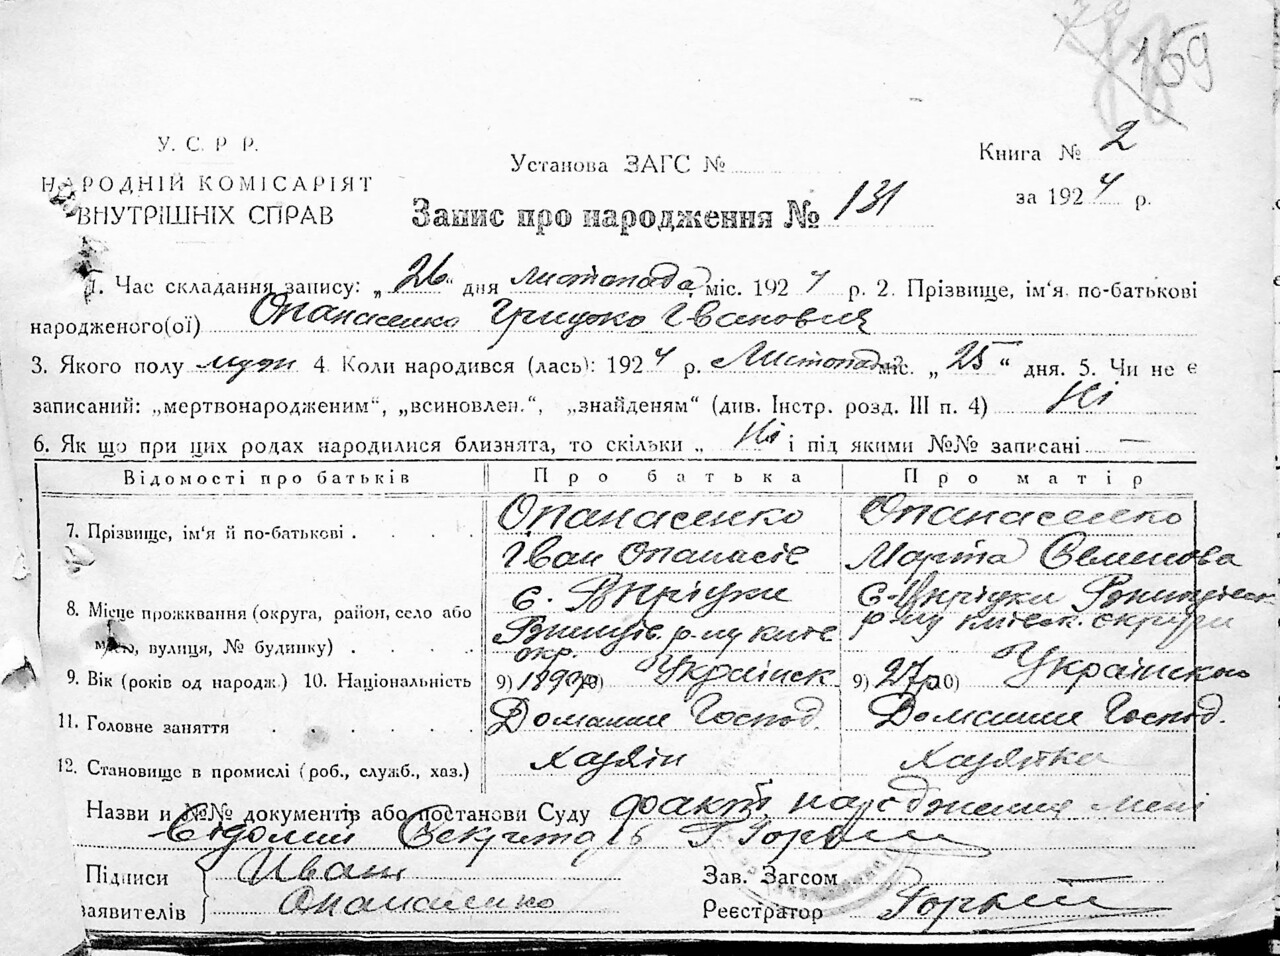 159
У. С. Р. Р.
НАРОДНІЙ КОМІСАРІЯТ
ВНУТРІШНІХ СПРАВ
Установа ЗАГС №
Книга № 2
за 1924 р.
Запис про народження № 131
1. Час складання запису: „26" дня листопада міс. 1924 р. 2. Прізвище, ім'я по-батькові
народженого(ої) Опанасенко Грицько Іванович
3. Якого полу муж 4. Коли народився (лась): 1924 р. Листопад міс. „25" дня. 5. Чи не є
записаний: „мертвонародженим", „всиновлен.", „знайденям" (див. Інстр. розд. III п. 4) Ні
6. Як що при цих родах народилися близнята, то скільки „ Ні і під якими №№ записані —
Відомості про батьків Про батька Про матір
7. Прізвище, ім'я й по-батькові . . . . Опанасенко Опанасенко
Іван Опанасів Марта Семенова
8. Місце проживання (округа, район, село або с.
вулиця, № будинку) . . . . р-ну київ. р-ну київськ. округи
окр.
9. Вік (років од народж.) 10. Національність 9) 10) Українск 9) 27р 10) Українською
11. Головне заняття . . . . . . Домашнє Господ. Домашнє Господ.
12. Становище в промислі (роб., служб., хаз.) Хазяїн Хазяйка
Назви и №№ документів або постанови Суду факт народження мені
відомий Секретарь
Підписи
заявителів
Иван
Опанасенко
Зав. Загсом —
Реєстратор